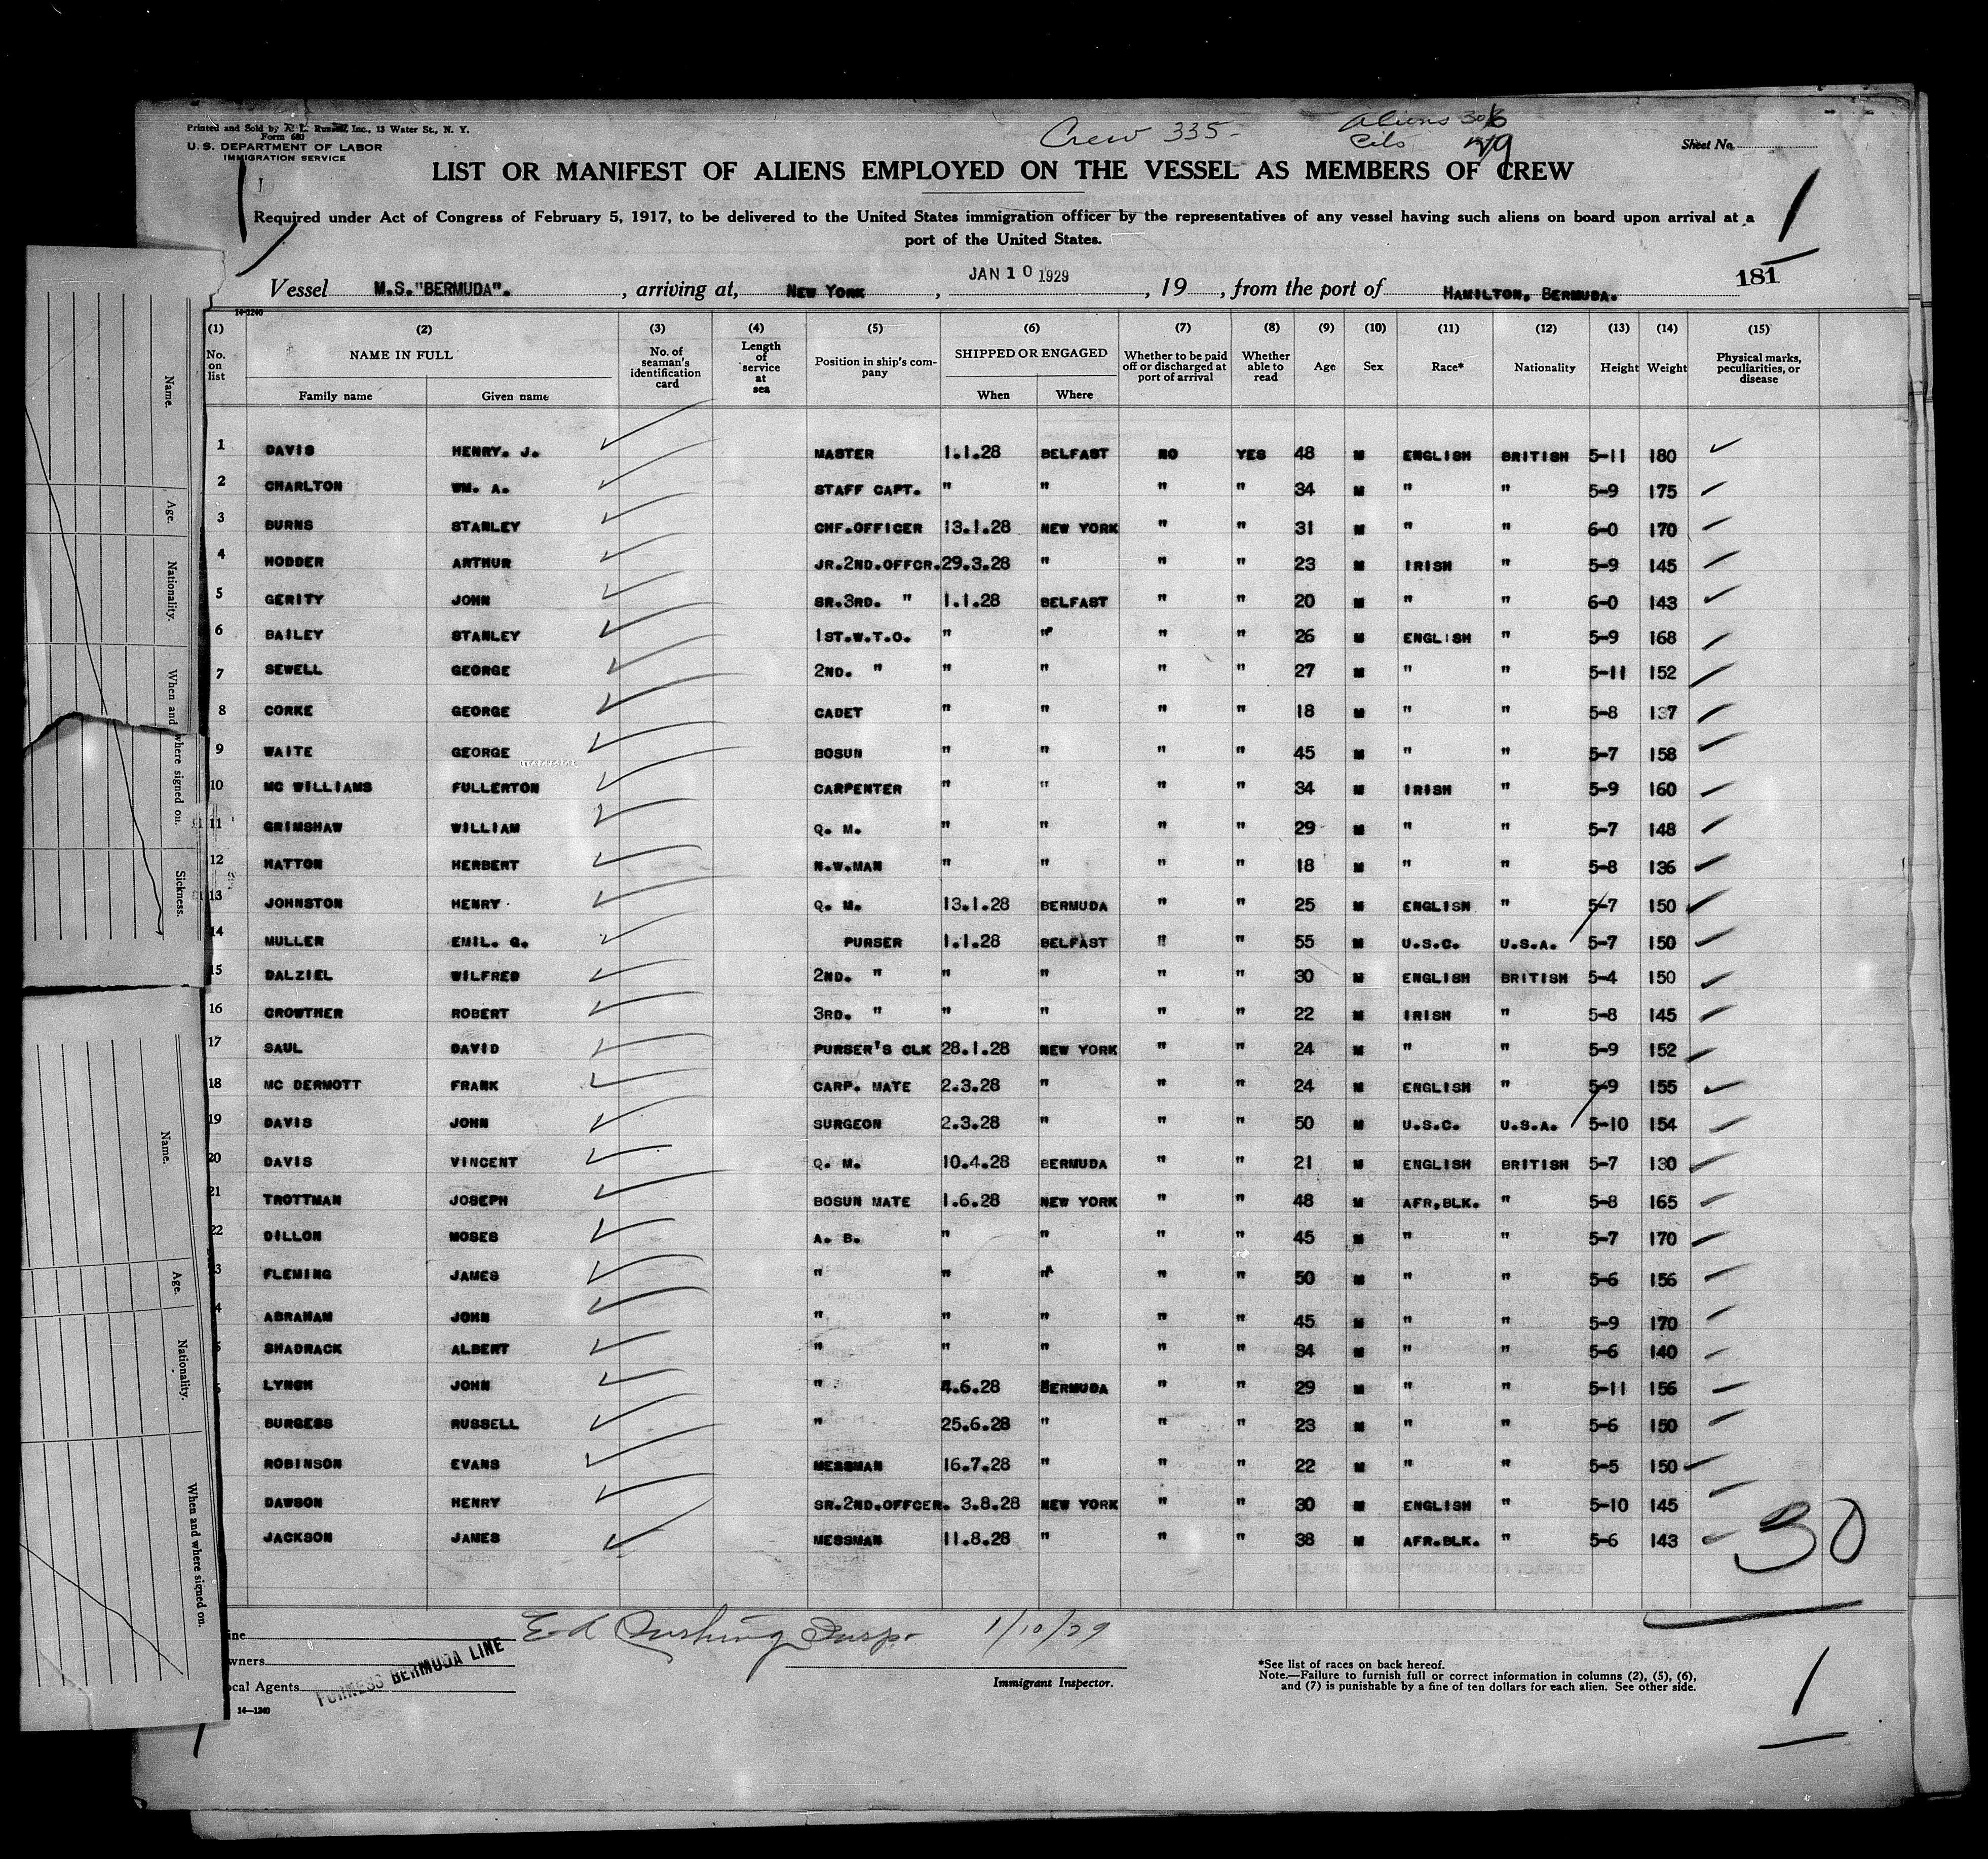 Printed and Sold by A. L. Russell, Inc., 13 Water St., N. Y.
Form 680
U. S. DEPARTMENT OF LABOR
IMMIGRATION SERVICE
Crew 335-
Aliens
Sheet No.
LIST OR MANIFEST OF ALIENS EMPLOYED ON THE VESSEL AS MEMBERS OF CREW
Required under Act of Congress of February 5, 1917, to be delivered to the United States immigration officer by the representatives of any vessel having such aliens on board upon arrival at a
port of the United States.
1
Vessel M.S."BERMUDA". , arriving at, NEW YORK , JAN 10 1929 , 19 , from the port of HAMILTON, BERMUDA. 181
14-1240
(1) (2) (3) (4) (5) (6) (7) (8) (9) (10) (11) (12) (13) (14) (15)
No. on list NAME IN FULL Family name Given name No. of seaman's identification card Length of service at sea Position in ship's company SHIPPED OR ENGAGED When Where Whether to be paid off or discharged at port of arrival Whether able to read Age Sex Race* Nationality Height Weight Physical marks, peculiarities, or disease
1 DAVIS HENRY. J. MASTER 1.1.28 BELFAST NO YES 48 M ENGLISH BRITISH 5-11 180
2 CHARLTON WM. A. STAFF CAPT. " " " " 34 M " " 5-9 175
3 BURNS STANLEY CHF.OFFICER 13.1.28 NEW YORK " " 31 M " " 6-0 170
4 HODDER ARTHUR JR.2ND.OFFCR. 29.3.28 " " " 23 M IRISH " 5-9 145
5 GERITY JOHN SR.3RD. " 1.1.28 BELFAST " " 20 M " " 6-0 143
6 BAILEY STANLEY 1ST.W.T.O. " " " " 26 M ENGLISH " 5-9 168
7 SEWELL GEORGE 2ND. " " " " " 27 M " " 5-11 152
8 CORKE GEORGE CADET " " " " 18 M " " 5-8 137
9 WAITE GEORGE BOSUN " " " " 45 M " " 5-7 158
10 MC WILLIAMS FULLERTON CARPENTER " " " " 34 M IRISH " 5-9 160
11 GRIMSHAW WILLIAM Q. M. " " " " 29 M " " 5-7 148
12 HATTON HERBERT N.W.MAN " " " " 18 M " " 5-8 136
13 JOHNSTON HENRY Q. M. 13.1.28 BERMUDA " " 25 M ENGLISH " 5-7 150
14 MULLER EMIL. G. PURSER 1.1.28 BELFAST " " 55 M U.S.C. U.S.A. 5-7 150
15 DALZIEL WILFRED 2ND. " " " " " 30 M ENGLISH BRITISH 5-4 150
16 CROWTHER ROBERT 3RD. " " " " " 22 M IRISH " 5-8 145
17 SAUL DAVID PURSER'S CLK 28.1.28 NEW YORK " " 24 M " " 5-9 152
18 MC DERMOTT FRANK CARP. MATE 2.3.28 " " " 24 M ENGLISH " 5-9 155
19 DAVIS JOHN SURGEON 2.3.28 " " " 50 M U.S.C. U.S.A. 5-10 154
20 DAVIS VINCENT Q. M. 10.4.28 BERMUDA " " 21 M ENGLISH BRITISH 5-7 130
21 TROTTMAN JOSEPH BOSUN MATE 1.6.28 NEW YORK " " 48 M AFR.BLK. " 5-8 165
22 DILLON MOSES A. B. " " " " 45 M " " 5-7 170
3 FLEMING JAMES " " " " " 50 M " " 5-6 156
4 ABRAHAM JOHN " " " " " 45 M " " 5-9 170
SHADRACK ALBERT " " " " " 34 M " " 5-6 140
LYNCH JOHN " 4.6.28 BERMUDA " " 29 M " " 5-11 156
BURGESS RUSSELL " 25.6.28 " " " 23 M " " 5-6 150
ROBINSON EVANS MESSMAN 16.7.28 " " " 22 M " " 5-5 150
DAWSON HENRY SR.2ND.OFFCER. 3.8.28 NEW YORK " " 30 M ENGLISH " 5-10 145
JACKSON JAMES MESSMAN 11.8.28 " " " 38 M AFR.BLK. " 5-6 143
30
ine
wners
ocal Agents
FURNESS BERMUDA LINE
14-1240
1/10/29
Immigrant Inspector.
*See list of races on back hereof.
Note.—Failure to furnish full or correct information in columns (2), (5), (6),
and (7) is punishable by a fine of ten dollars for each alien. See other side.
1
Name.
Age.
Nationality.
When and where signed on.
Sickness.
Name.
Age.
Nationality.
When and where signed on.